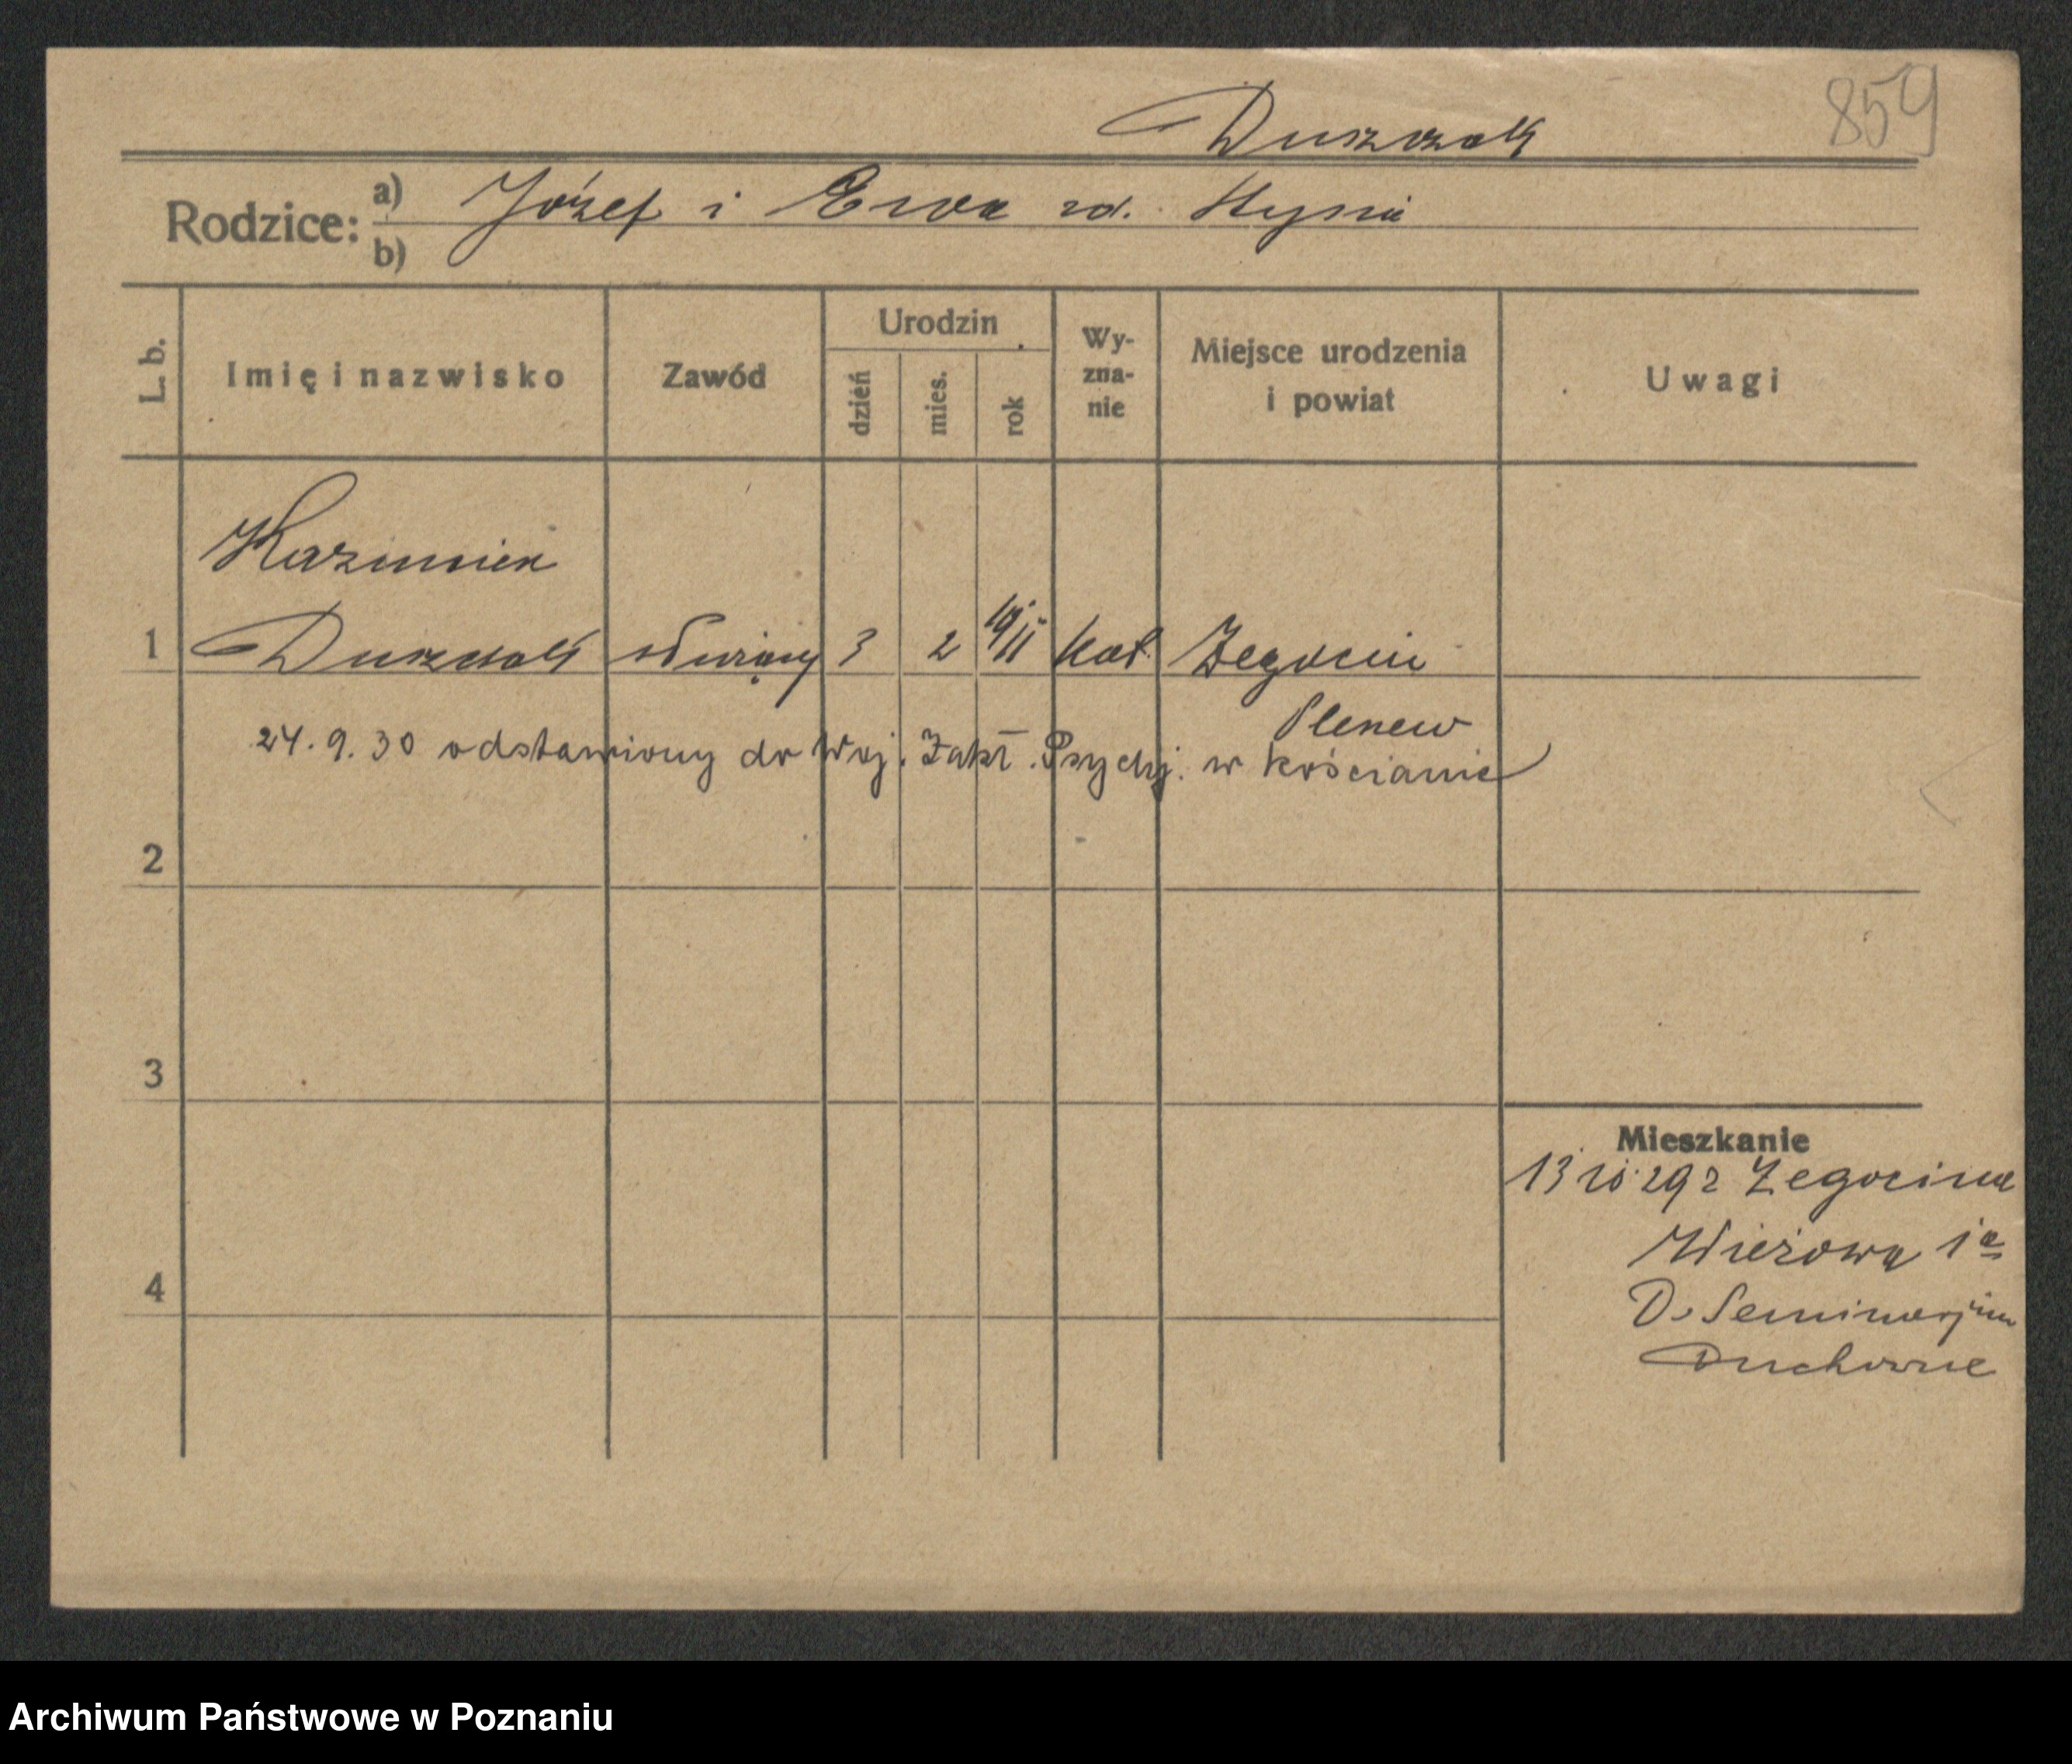 859
Duszczak
Rodzice: a) Józef i Ewa zd.
b)
L. b. Imię i nazwisko Zawód Urodzin dzień mies. rok Wy-zna-nie Miejsce urodzenia i powiat Uwagi
Kazimierz
1 Duszczak służący 3 2 1911 kat. Żegocin
Pleszew
24.9.30 odstawiony do Woj. Zakł. Psychj. w Kościanie
2
3
Mieszkanie
13 10 29 z Żegocina
Wieżowa 1a
4
D. Seminarjum
Duchowne
Archiwum Państwowe w Poznaniu